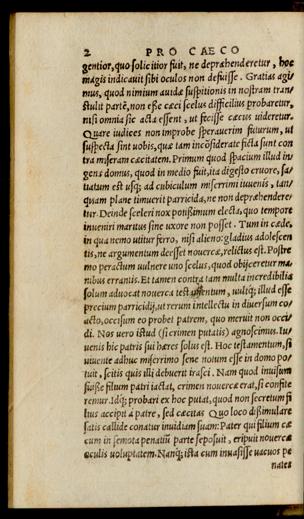 2 PRO CAECO
gentior, quo solicitior fuit, ne depræhenderetur, hoc
magis indicauit sibi oculos non defuisse. Gratias agi
mus, quod nimium auidæ suspitionis in nostram tran
stulit partē, non eße cæci scelus difficilius probaretur,
nisi omnia sic acta essent, ut fecisse cæcus uideretur.
Quare iudices non improbe sperauerim futurum, ut
suspecta sint uobis, quæ tam incōsiderate ficta sunt con
tra miseram cæcitatem. Primum quod spacium illud in
gens domus, quod in medio fuit, ita digesto cruore, sa/
tiatum est usq; ad cubiculum miserrimi iuuenis, tan/
quam plane timuerit parricida, ne non depræhendere/
tur. Deinde sceleri nox potißimum electa, quo tempore
inueniri maritus sine uxore non posset. Tum in cæde,
in qua nemo utitur ferro, nisi alieno: gladius adolescen
tis, ne argumentum deesset nouercæ, relictus est. Postre
mo peractum uulnere uno scelus, quod obijceretur ma/
nibus errantis. Et tamen contra tam multa incredibilia
solum aduocat nouerca testamentum, uultq; illud esse
precium parricidij, ut rerum intellectu in diuersum co/
acto, occisum eo probet patrem, quo meruit non occi/
di. Nos uero istud (si crimen putatis) agnoscimus. Iu/
uenis hic patris sui hæres solus est. Hoc testamentum, si
uiuente adhuc miserrimo sene notum esse in domo po/
tuit, scitis quis illi debuerit irasci. Nam quod inuisum
fuiße filium patri iactat, crimen nouercæ erat, si confite
remur. Idq; probari ex hoc putat, quod non secretum fi
lius accepit a patre, sed cæcitas Quo loco dißimulare
satis callide conatur inuidiam suam: Pater qui filium cæ
cum in semota penatiū parte seposuit, eripuit nouercæ
oculis uoluptatem. Nanq; ista cum inuasisse uacuos pe
nates